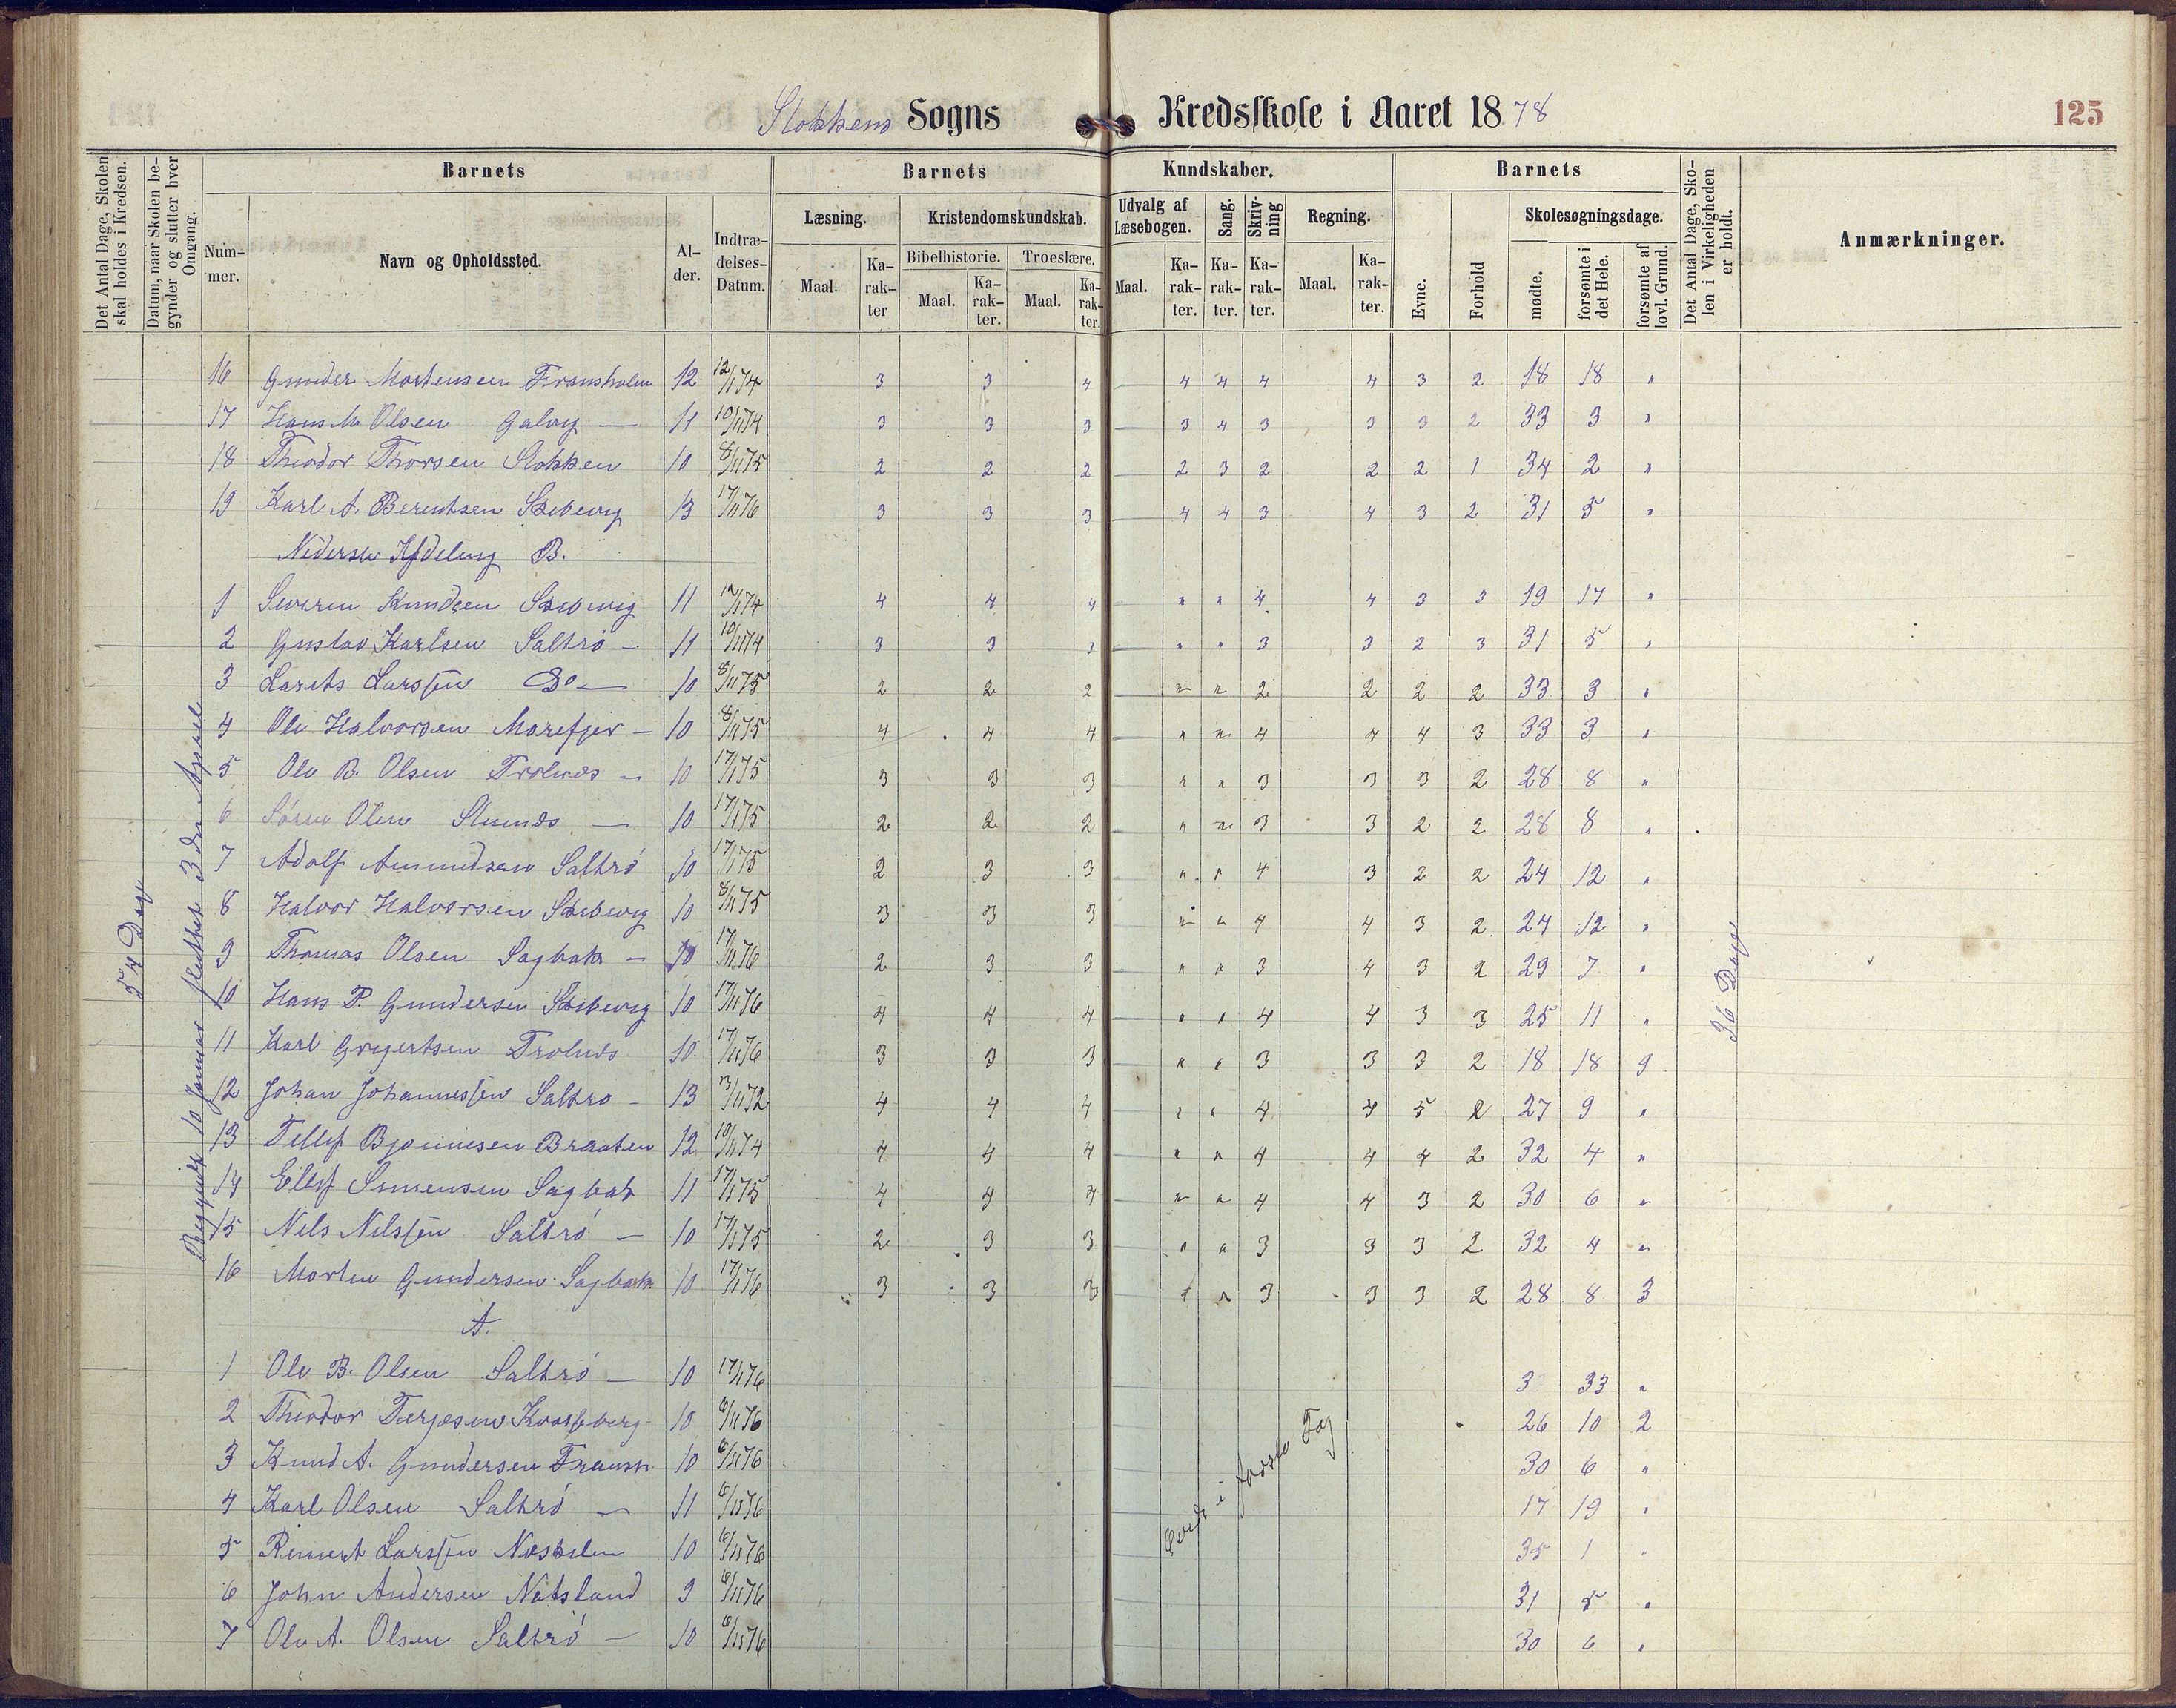 Stokkens Sogns Kredsskole i Aaret 1878
125
Det Antal Dage, Skolen skal holdes i Kredsen.
Datum, naar Skolen begynder og slutter hver Omgang.
Barnets
Nummer.
Navn og Opholdssted.
Alder.
Indtrædelses-Datum.
Barnets Kundskaber.
Læsning.
Maal.
Karakter
Kristendomskundskab.
Bibelhistorie.
Maal.
Karakter.
Troeslære.
Maal.
Karakter.
Udvalg af Læsebogen.
Maal.
Karakter.
Sang.
Karakter.
Skrivning
Karakter.
Regning.
Maal.
Karakter.
Barnets
Evne.
Forhold
Skolesøgningsdage.
mødte.
forsømte i det Hele.
forsømte af lovl. Grund.
Det Antal Dage, Skolen i Virkeligheden er holdt.
Anmærkninger.
54 Dage
Begyndt 10 Januar sluttet 3 den April
36 Dage
16 Gunder Mortensen Fransholm 12 12/11 74 3 3 4 4 4 4 4 3 2 18 18 "
17 Hans M. Olsen Galvig — 11 10/11 74 3 3 3 3 4 3 3 3 2 33 3 "
18 Theodor Thorsen Stokken 10 8/11 75 2 2 2 2 3 2 2 2 1 34 2 "
19 Karl A. Berentsen 13 17/1 76 3 3 3 4 4 3 4 3 2 31 5 "
Nederste Afdeling B.
1 Severin Knudsen 11 12/11 74 4 4 4 " " 4 4 3 3 19 17 "
2 Gustav Karlsen Saltrø — 11 10/11 74 3 3 3 " " 3 3 2 3 31 5 "
3 Larets Larssen Do — 10 8/11 75 2 2 2 " " 2 2 2 2 33 3 "
4 Ole Halvorsen Morefjer — 10 8/11 75 4 4 4 " " 4 4 4 3 33 3 "
5 Ole B. Olsen Trolnes — 10 17/1 75 3 3 3 " " 3 3 3 2 28 8 "
6 Sören Olsen — 10 17/1 75 2 2 2 " " 3 3 2 2 28 8 "
7 Adolf Amundsen Saltrø 10 17/1 75 2 3 3 " " 4 3 2 2 24 12 "
8 Halvor Halvorsen 10 8/11 75 3 3 3 " " 4 4 3 2 24 12 "
9 Thomas Olsen Sagbak — 10 17/1 76 2 3 3 " " 3 4 3 2 29 7 "
10 Hans P. Gundersen 10 17/1 76 4 4 4 " " 4 4 3 3 25 11 "
11 Karl Gregertsen Trolnes 10 17/1 76 3 3 3 " " 3 3 3 2 18 18 9
12 Johan Johannessen Saltrø — 13 3/11 72 4 4 4 " " 4 4 5 2 27 9 "
13 Tellef Bjønnesen Braaten 12 10/11 74 4 4 4 " " 4 4 4 2 32 4 "
14 Ellef Simensen Sagbak 11 17/1 75 4 4 4 " " 4 4 3 2 30 6 "
15 Nils Nilssen Saltrø — 10 17/1 75 2 3 3 " " 3 3 3 2 32 4 "
16 Morten Gundersen Sagbak 10 17/1 76 3 3 3 " " 3 3 3 2 28 8 3
A.
1 Ole B. Olsen Saltrø — 10 17/1 76 3 33 "
2 Theodor Terjesen 10 6/11 76 26 10 2
3 Knud A. Gundersen Fransh 10 6/11 76 30 6 "
4 Karl Olsen Saltrø — 11 6/11 76 17 19 "
5 Reinert Larssen Neskilen 10 6/11 76 35 1 "
6 John Andersen Natsland 9 6/11 76 31 5 "
7 Ole A. Olsen Saltrø — 10 6/11 76 30 6 "
i første Fag